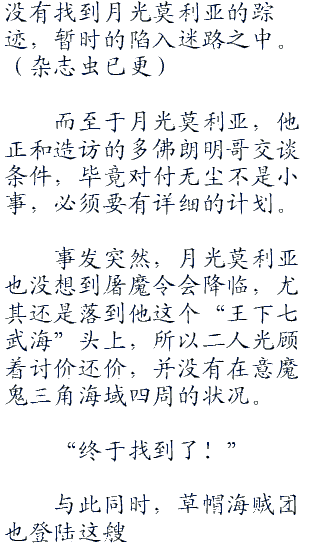 没有找到月光莫利亚的踪
迹，暂时的陷入迷路之中。
（杂志虫已更）
而至于月光莫利亚，他
正和造访的多佛朗明哥交谈
条件，毕竟对付无尘不是小
事，必须要有详细的计划。
事发突然，月光莫利亚
也没想到屠魔令会降临，尤
其还是落到他这个“王下七
武海”头上，所以二人光顾
着讨价还价，并没有在意魔
鬼三角海域四周的状况。
“终于找到了！”
与此同时，草帽海贼团
也登陆这艘